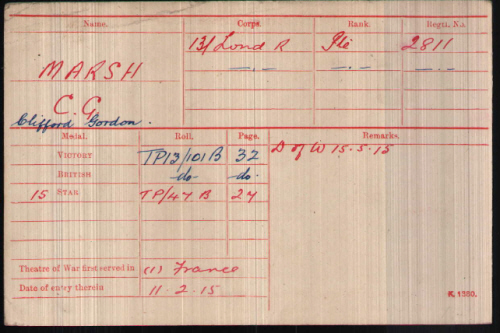 Name. Corps. Rank. Regtl. No.
MARSH 13/Lond R Pte 2811
C. G. —„— —„—
Clifford Gordon.
Medal. Roll. Page. Remarks.
VICTORY TP13/101B 32 D of W 15.5.15
BRITISH do do.
15 STAR TP/47 B 24
Theatre of War first served in (1) France
Date of entry therein 11.2.15
K. 1380.